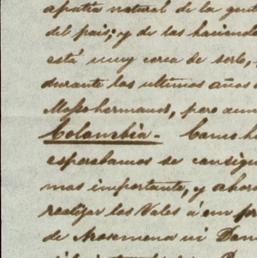 apatia natural de la gent
del pais; y de las haciend
está muy cerca de serlo,
durante los ultimos años
hermanos, pero aun
Colombia.-
esperabamos se consigu
mas importante, y ahor
realizar los Vales á un pr
de Arosemena ni